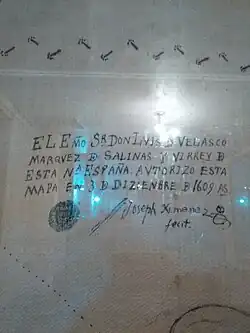 EL EΛᴍO SR. DON LVIS D VELASCO
MARQVEZ D SALINAS Y VIRREY D
ESTA Nª ESPAÑA. AVTORIZO ESTA
MAPA EN 3 D DIZIENBRE D 1609 AS
Joseph
fecit.